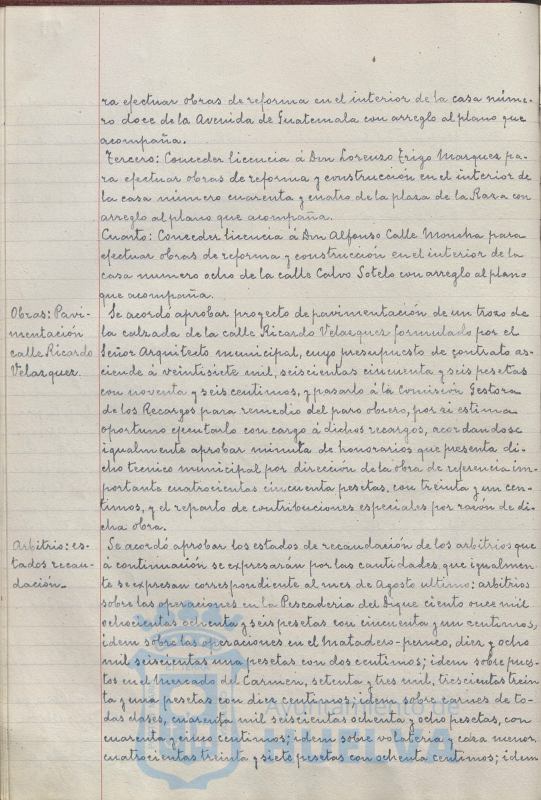 ra efectuar obras de reforma en el interior de la casa núme-
ro doce de la Avenida de Guatemala con arreglo al plano que
acompaña.
Tercero: Conceder licencia á Don Lorenzo Trigo Marquez pa-
ra efectuar obras de reforma y construcción en el interior de
la casa número cuarenta y cuatro de la plaza de la Raza con
arreglo al plano que acompaña.
Cuarto: Conceder licencia á Don Alfonso Calle Moncha para
efectuar obras de reforma y construcción en el interior de la
casa numero ocho de la calle Calvo Sotelo con arreglo al plano
que acompaña.
Obras: Pavi-
mentación
calle Ricardo
Velazquez.
Se acordó aprobar proyecto de pavimentación de un trozo de
la calzada de la calle Ricardo Velazquez formulado por el
Señor Arquitecto municipal, cuyo presupuesto de contrato as-
ciende á veintisiete mil, seiscientas cincuenta y seis pesetas
con noventa y seis centimos, y pasarlo á la Comisión Gestora
de los Recargos para remedio del paro obrero, por si estima
oportuno ejecutarlo con cargo á dichos recargos, acordandose
igualmente aprobar minuta de honorarios que presenta di-
cho tecnico municipal por dirección de la obra de referencia im-
portante cuatrocientas cincuenta pesetas, con treinta y un cen-
timos, y el reparto de contribuciones especiales por razón de di-
cha obra.
Arbitrio: es-
tados recau-
dación.
Se acordó aprobar los estados de recaudación de los arbitrios que
á continuación se expresarán por las cantidades que igualmen-
te se expresan correspondiente al mes de Agosto ultimo: arbitrios
sobre las operaciones en la Pescaderia del Dique ciento once mil
ochocientas ochenta y seis pesetas con cincuenta y un centimos,
idem sobre las operaciones en el matadero-perneo, diez y ocho
mil seiscientas una pesetas con dos centimos; idem sobre pues-
tos en el mercado del Carmen, setenta y tres mil, trescientas trein
ta y una pesetas con diez centimos; idem sobre carnes de to-
das clases, cuarenta mil seiscientas ochenta y ocho pesetas, con
cuarenta y cinco centimos; idem sobre volateria y caza menor
cuatrocientas treinta y siete pesetas con ochenta centimos; idem
Ayuntamiento de
HUELVA